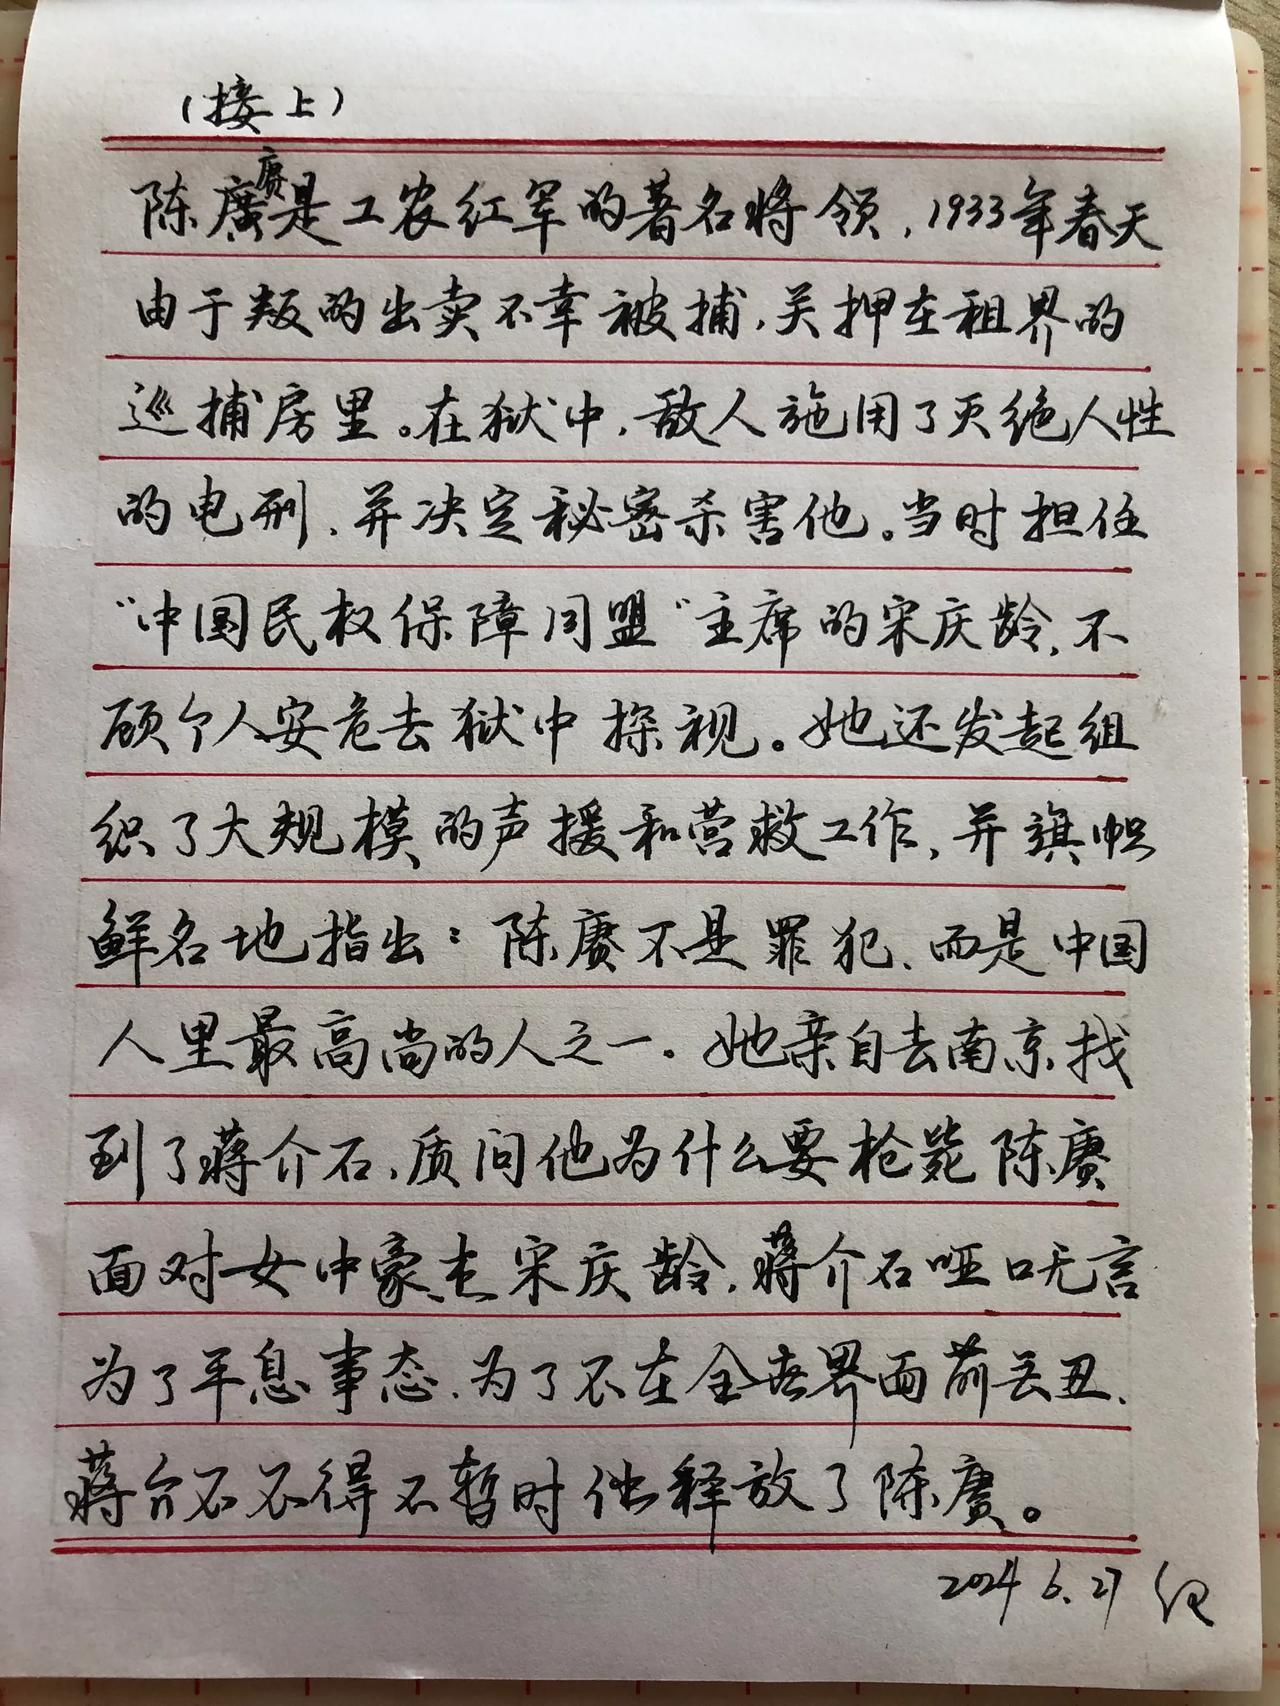 （接上）
赓
陈赓是工农红军的著名将领，1933年春天
由于叛的出卖不幸被捕，关押在租界的
巡捕房里。在狱中，敌人施用了灭绝人性
的电刑，并决定秘密杀害他。当时担任
“中国民权保障同盟”主席的宋庆龄，不
顾个人安危去狱中探视。她还发起组
织了大规模的声援和营救工作，并旗帜
鲜名地指出：陈赓不是罪犯、而是中国
人里最高尚的人之一。她亲自去南京找
到了蒋介石，质问他为什么要枪毙陈赓
面对女中豪杰宋庆龄，蒋介石哑口无言
为了平息事态，为了不在全世界面前丢丑，
蒋介石不得不暂时他释放了陈赓。
2024 6.27